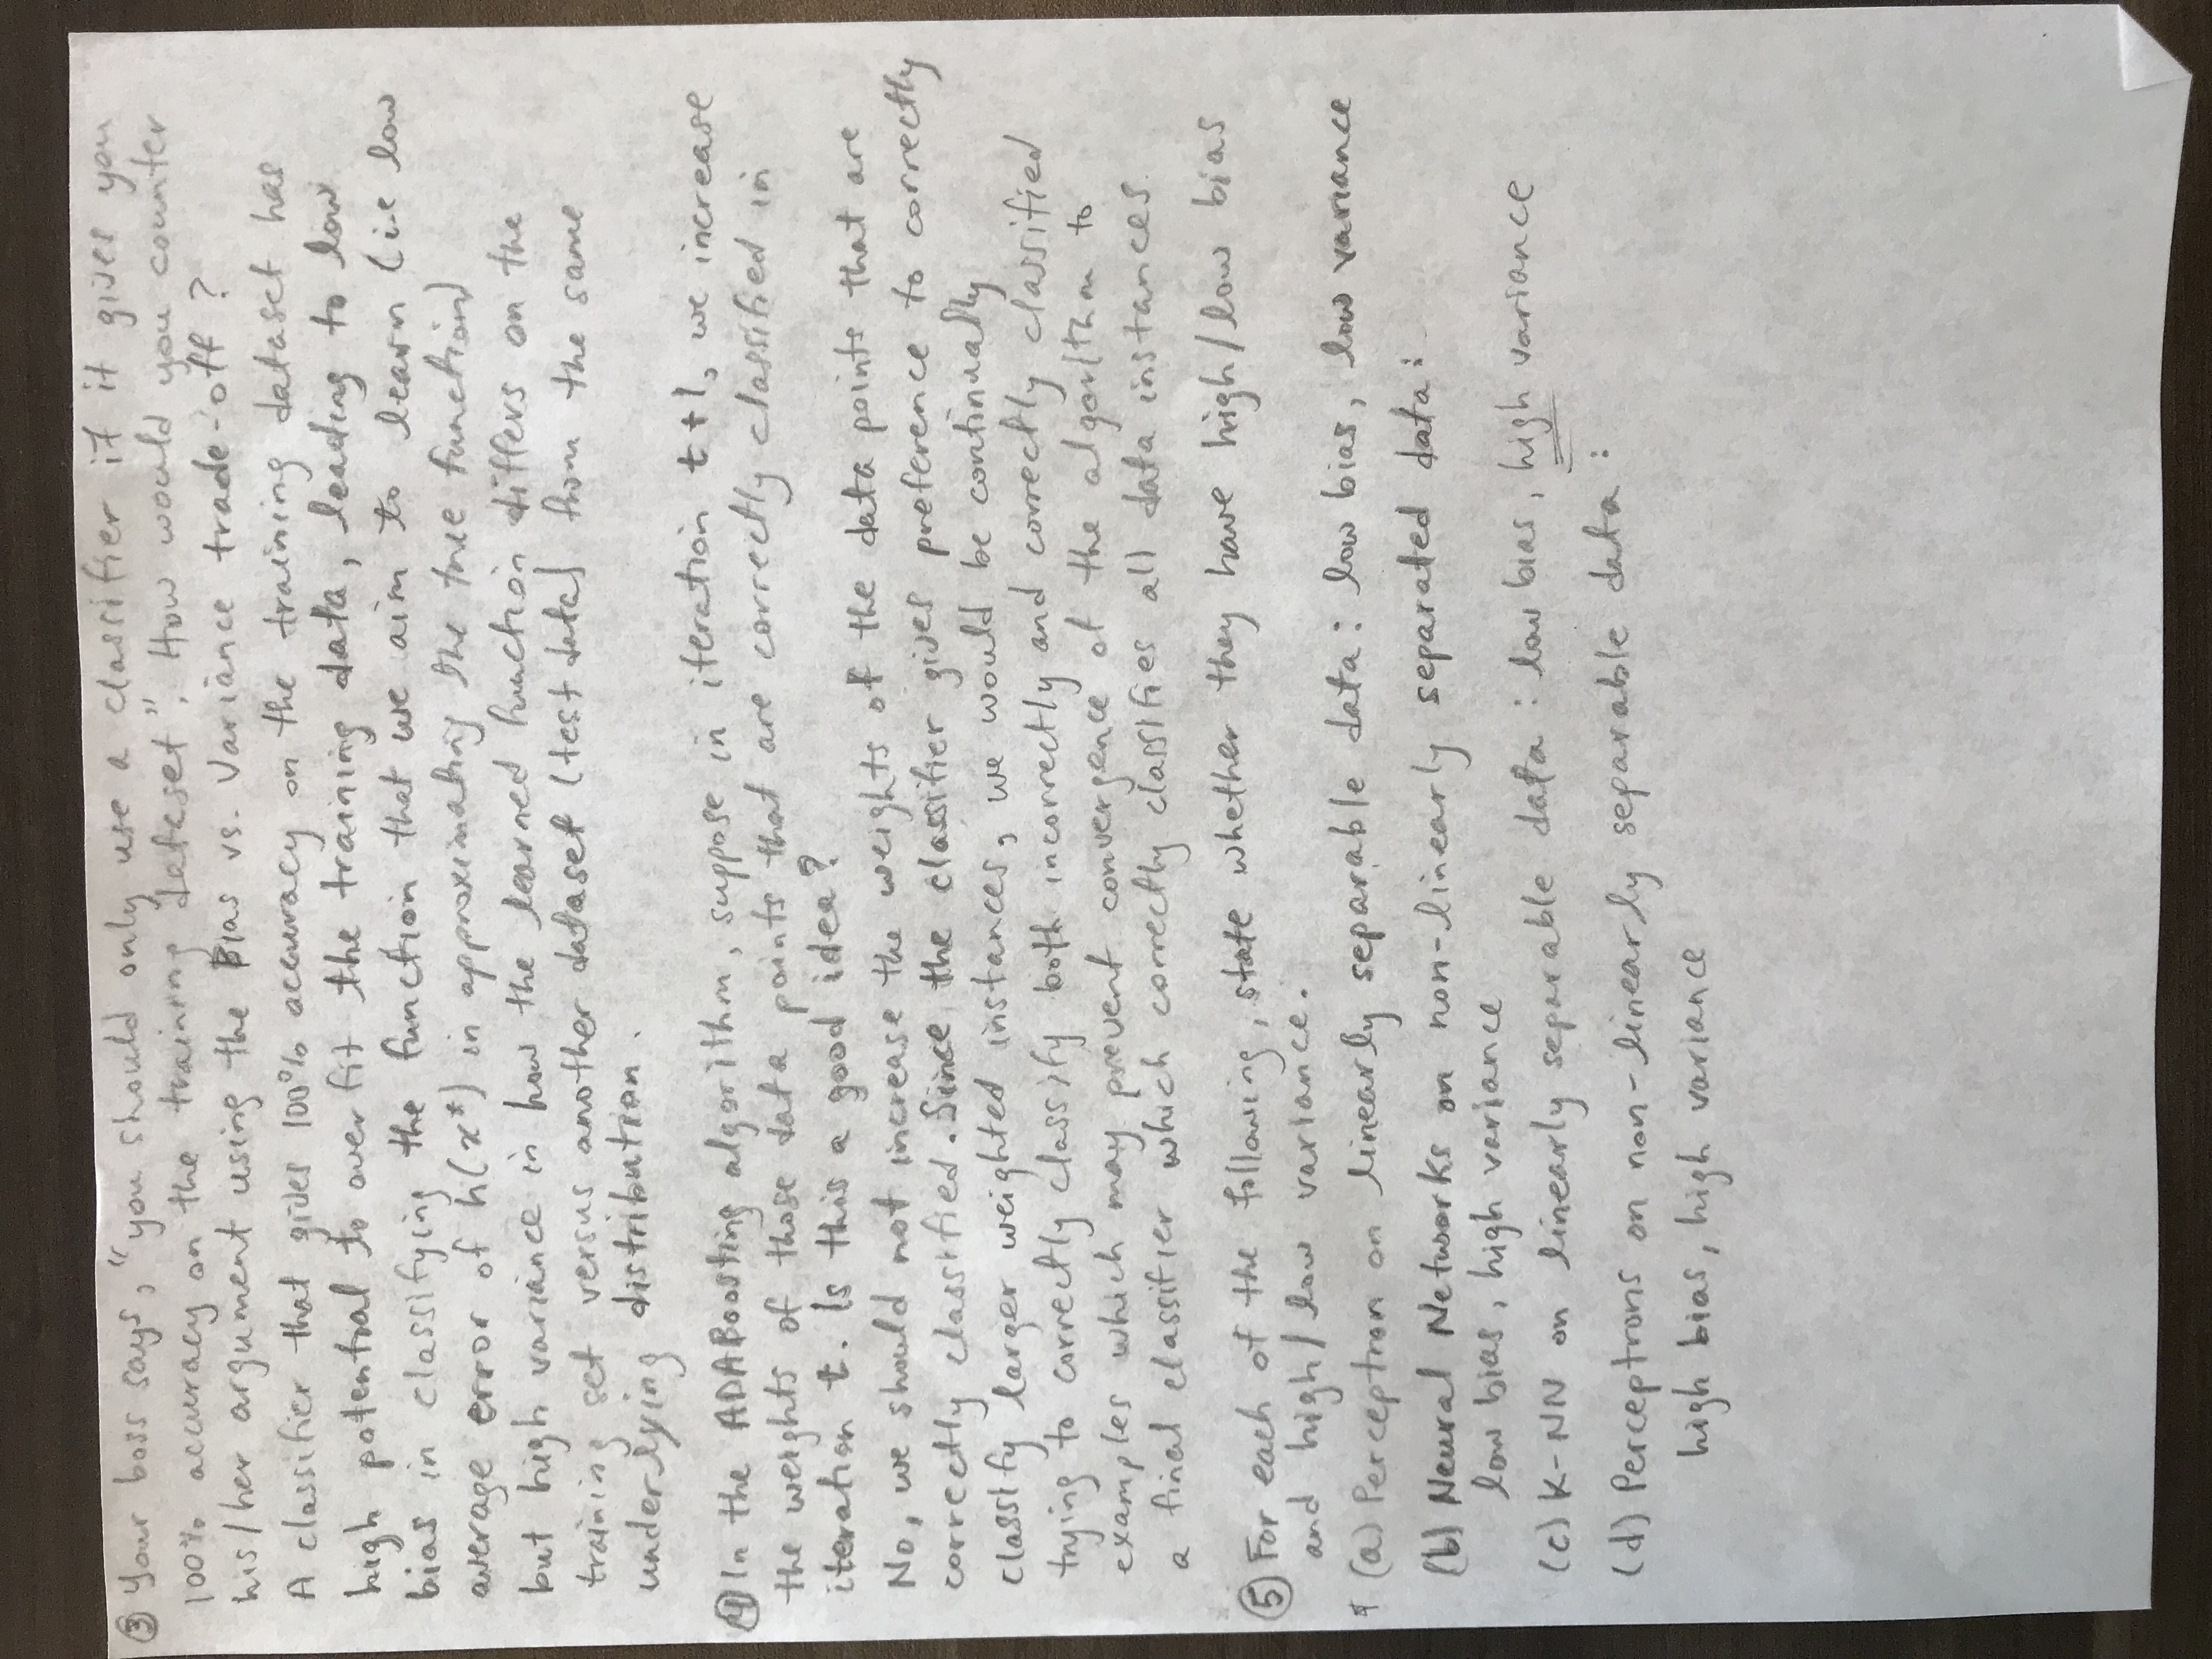 ③ Your boss says, "you should only use a classifier if it gives you
100% accuracy on the training dataset". How would you counter
his/her argument using the Bias vs. Variance trade-off?
A classifier that gives 100% accuracy on the training dataset has
high potential to overfit the training data, leading to low
bias in classifying the function that we aim to learn (i.e low
average error of h(x*) in approximating the true function)
but high variance in how the learned function differs on the
training set versus another dataset (test data) from the same
underlying distribution.
④ In the ADABoosting algorithm, suppose in iteration t+1, we increase
the weights of those data points that are correctly classified in
iteration t. Is this a good idea?
No, we should not increase the weights of the data points that are
correctly classified. Since the classifier gives preference to correctly
classify larger weighted instances, we would be continually
trying to correctly classify both incorrectly and correctly classified
examples which may prevent convergence of the algorithm to
a final classifier which correctly classifies all data instances.
⑤ For each of the following, state whether they have high/low bias
and high/low variance.
(a) Perceptron on linearly separable data: low bias, low variance
(b) Neural Networks on non-linearly separated data:
low bias, high variance
(c) K-NN on linearly separable data: low bias, high variance
(d) Perceptrons on non-linearly separable data:
high bias, high variance